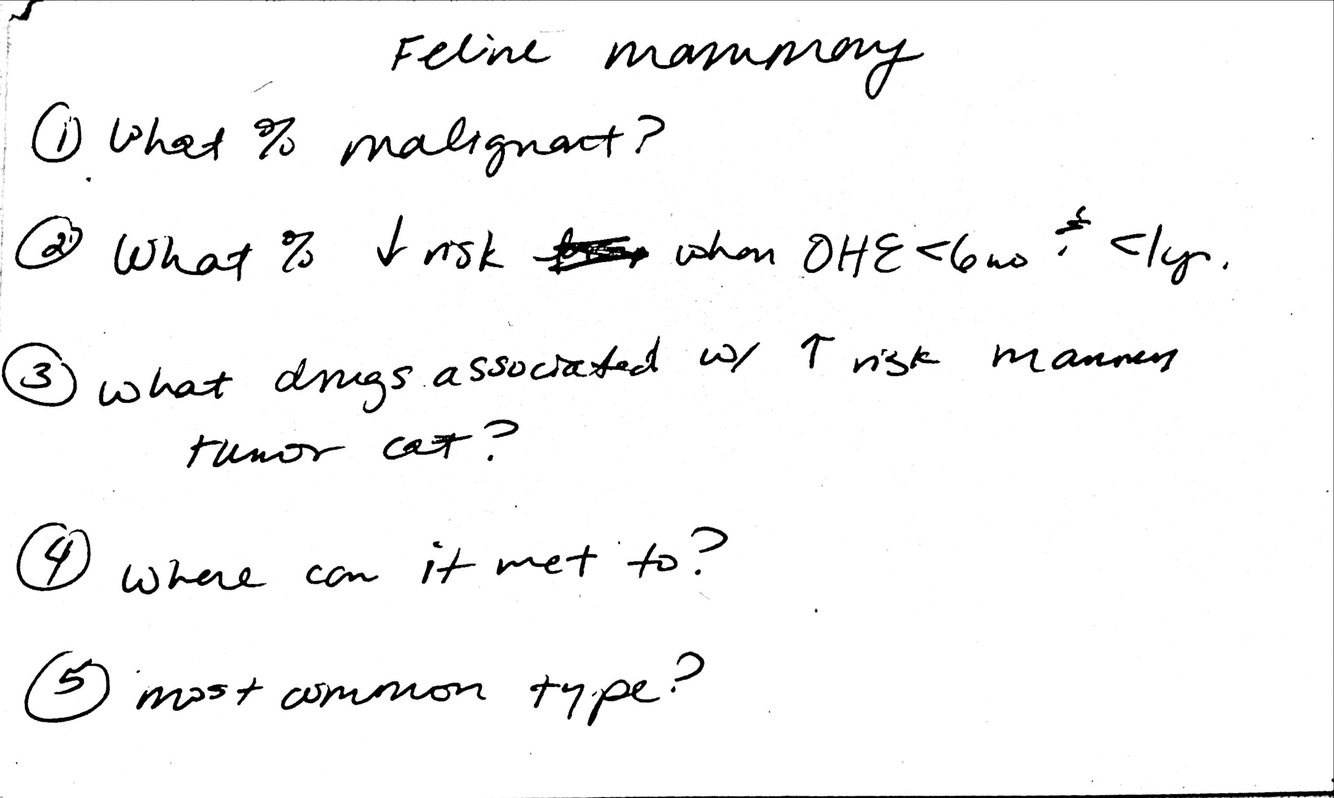 Feline mammary
① What % malignant?
② What % ↓ risk when OHE <6mo & <1yr.
③ what drugs associated w/ ↑ risk mammary
tumor cat?
④ where can it met to?
⑤ most common type?